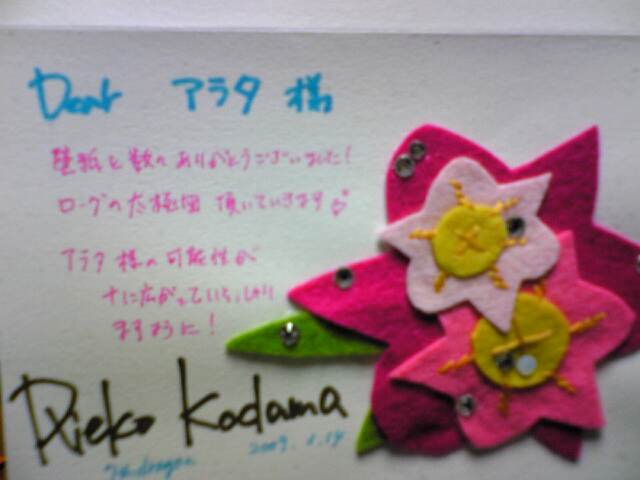 Dear アラタ 様
壁紙と数々ありがとうございました!
ローグの太極図 頂いていきます
アラタ様の可能性が
十に広がっていらっしゃい
ますように!
Rieko Kodama
2009. 1.14